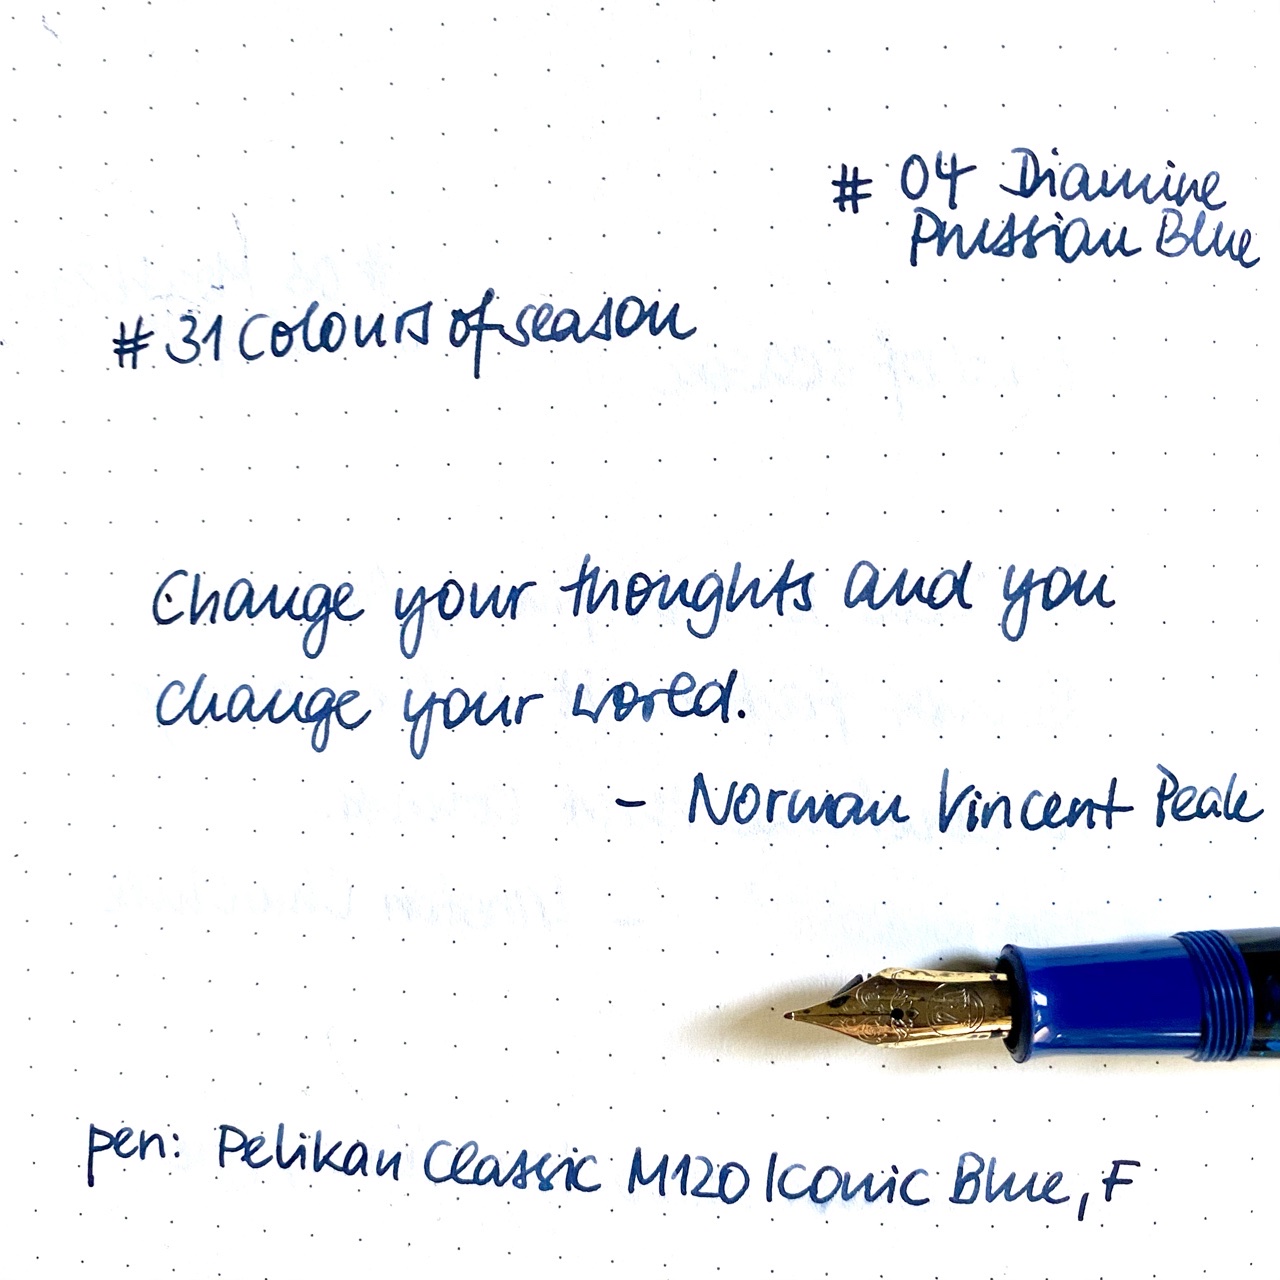 # 04 Diamine
Prussian Blue
# 31 Colours of season
Change your thoughts and you
change your world.
- Norman Vincent Peale
pen: Pelikan Classic M120 Iconic Blue, F